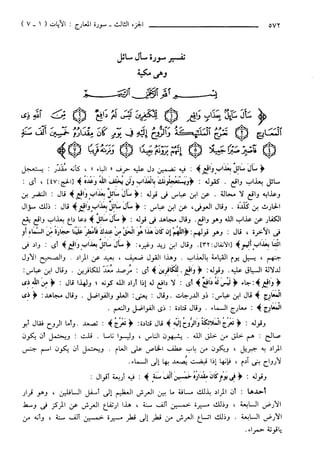 ٥٧٢ الجزء الثالث - سورة المعارج : الآيات ( ١ - ٧ )
تفسير سورة سأل سائل
وهي مكية
﴿ سأل سائل بعذاب واقع ﴾ : فيه تضمين دل عليه حرف « الباء » ، كأنه مقدر : يستعجل
سائل بعذاب واقع . كقوله : ﴿ ويستعجلونك بالعذاب ولن يخلف الله وعده ﴾ [الحج:٤٧] ، أي :
وعذابه واقع لا محالة . عن ابن عباس في قوله : ﴿ سأل سائل بعذاب واقع ﴾ قال : النضر بن
الحارث بن كلدة . وقال العوفي، عن ابن عباس : ﴿ سأل سائل بعذاب واقع ﴾ قال : ذلك سؤال
الكفار عن عذاب الله وهو واقع. وقال مجاهد في قوله : ﴿ سأل سائل ﴾ دعا داع بعذاب واقع يقع
في الآخرة ، قال : وهو قولهم : ﴿ اللهم إن كان هذا هو الحق من عندك فأمطر علينا حجارة من السماء أو
ائتنا بعذاب أليم ﴾ [الأنفال:٣٢]. وقال ابن زيد وغيره: ﴿ سأل سائل بعذاب واقع ﴾ أي : واد في
جهنم ، يسيل يوم القيامة بالعذاب . وهذا القول ضعيف ، بعيد عن المراد . والصحيح الأول
لدلالة السياق عليه. وقوله: ﴿ واقع . للكافرين ﴾ أي : مرصد معد للكافرين . وقال ابن عباس:
﴿ واقع ﴾: جاء ﴿ ليس له دافع ﴾ أي : لا دافع له إذا أراد الله كونه ، ولهذا قال : ﴿ من الله ذي
المعارج ﴾ قال ابن عباس: ذو الدرجات . وقال : يعني: العلو والفواضل . وقال مجاهد: ﴿ ذي
المعارج ﴾ : معارج السماء . وقال قتادة : ذي الفواضل والنعم .
وقوله : ﴿ تعرج الملائكة والروح إليه ﴾ قال قتادة: ﴿ تعرج ﴾ : تصعد . وأما الروح فقال أبو
صالح : هم خلق من خلق الله . يشبهون الناس ، وليسوا ناسا . قلت : ويحتمل أن يكون
المراد به جبريل ، ويكون من باب عطف الخاص على العام . ويحتمل أن يكون اسم جنس
لأرواح بني آدم ، فإنها إذا قبضت يُصعد بها إلى السماء .
وقوله : ﴿ في يوم كان مقداره خمسين ألف سنة ﴾ : فيه أربعة أقوال :
أحدها : أن المراد بذلك مسافة ما بين العرش العظيم إلى أسفل السافلين ، وهو قرار
الأرض السابعة ، وذلك مسيرة خمسين ألف سنة ، هذا ارتفاع العرش عن المركز في وسط
الأرض السابعة . وذلك اتساع العرش من قطر إلى قطر مسيرة خمسين ألف سنة ، وأنه من
ياقوتة حمراء.